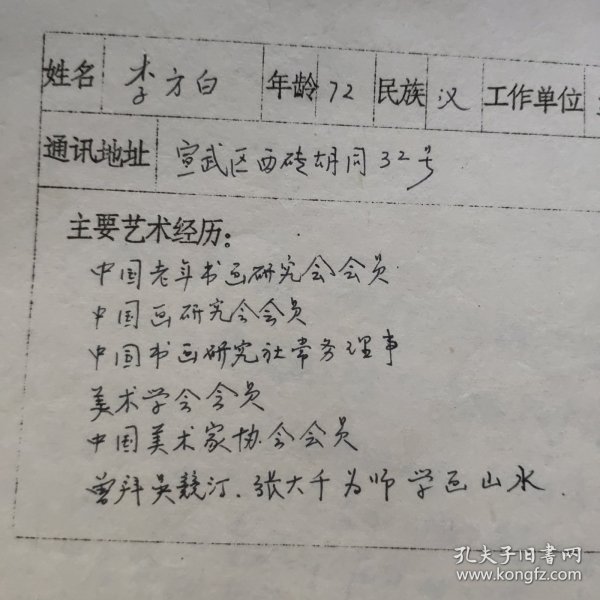 姓名 李方白 年龄 72 民族 汉 工作单位
通讯地址 宣武区西砖胡同32号
主要艺术经历：
中国老年书画研究会会员
中国画研究会会员
中国书画研究社常务理事
美术学会会员
中国美术家协会会员
曾拜吴镜汀、张大千为师 学画山水.
孔夫子旧书网
www.kongfz.com